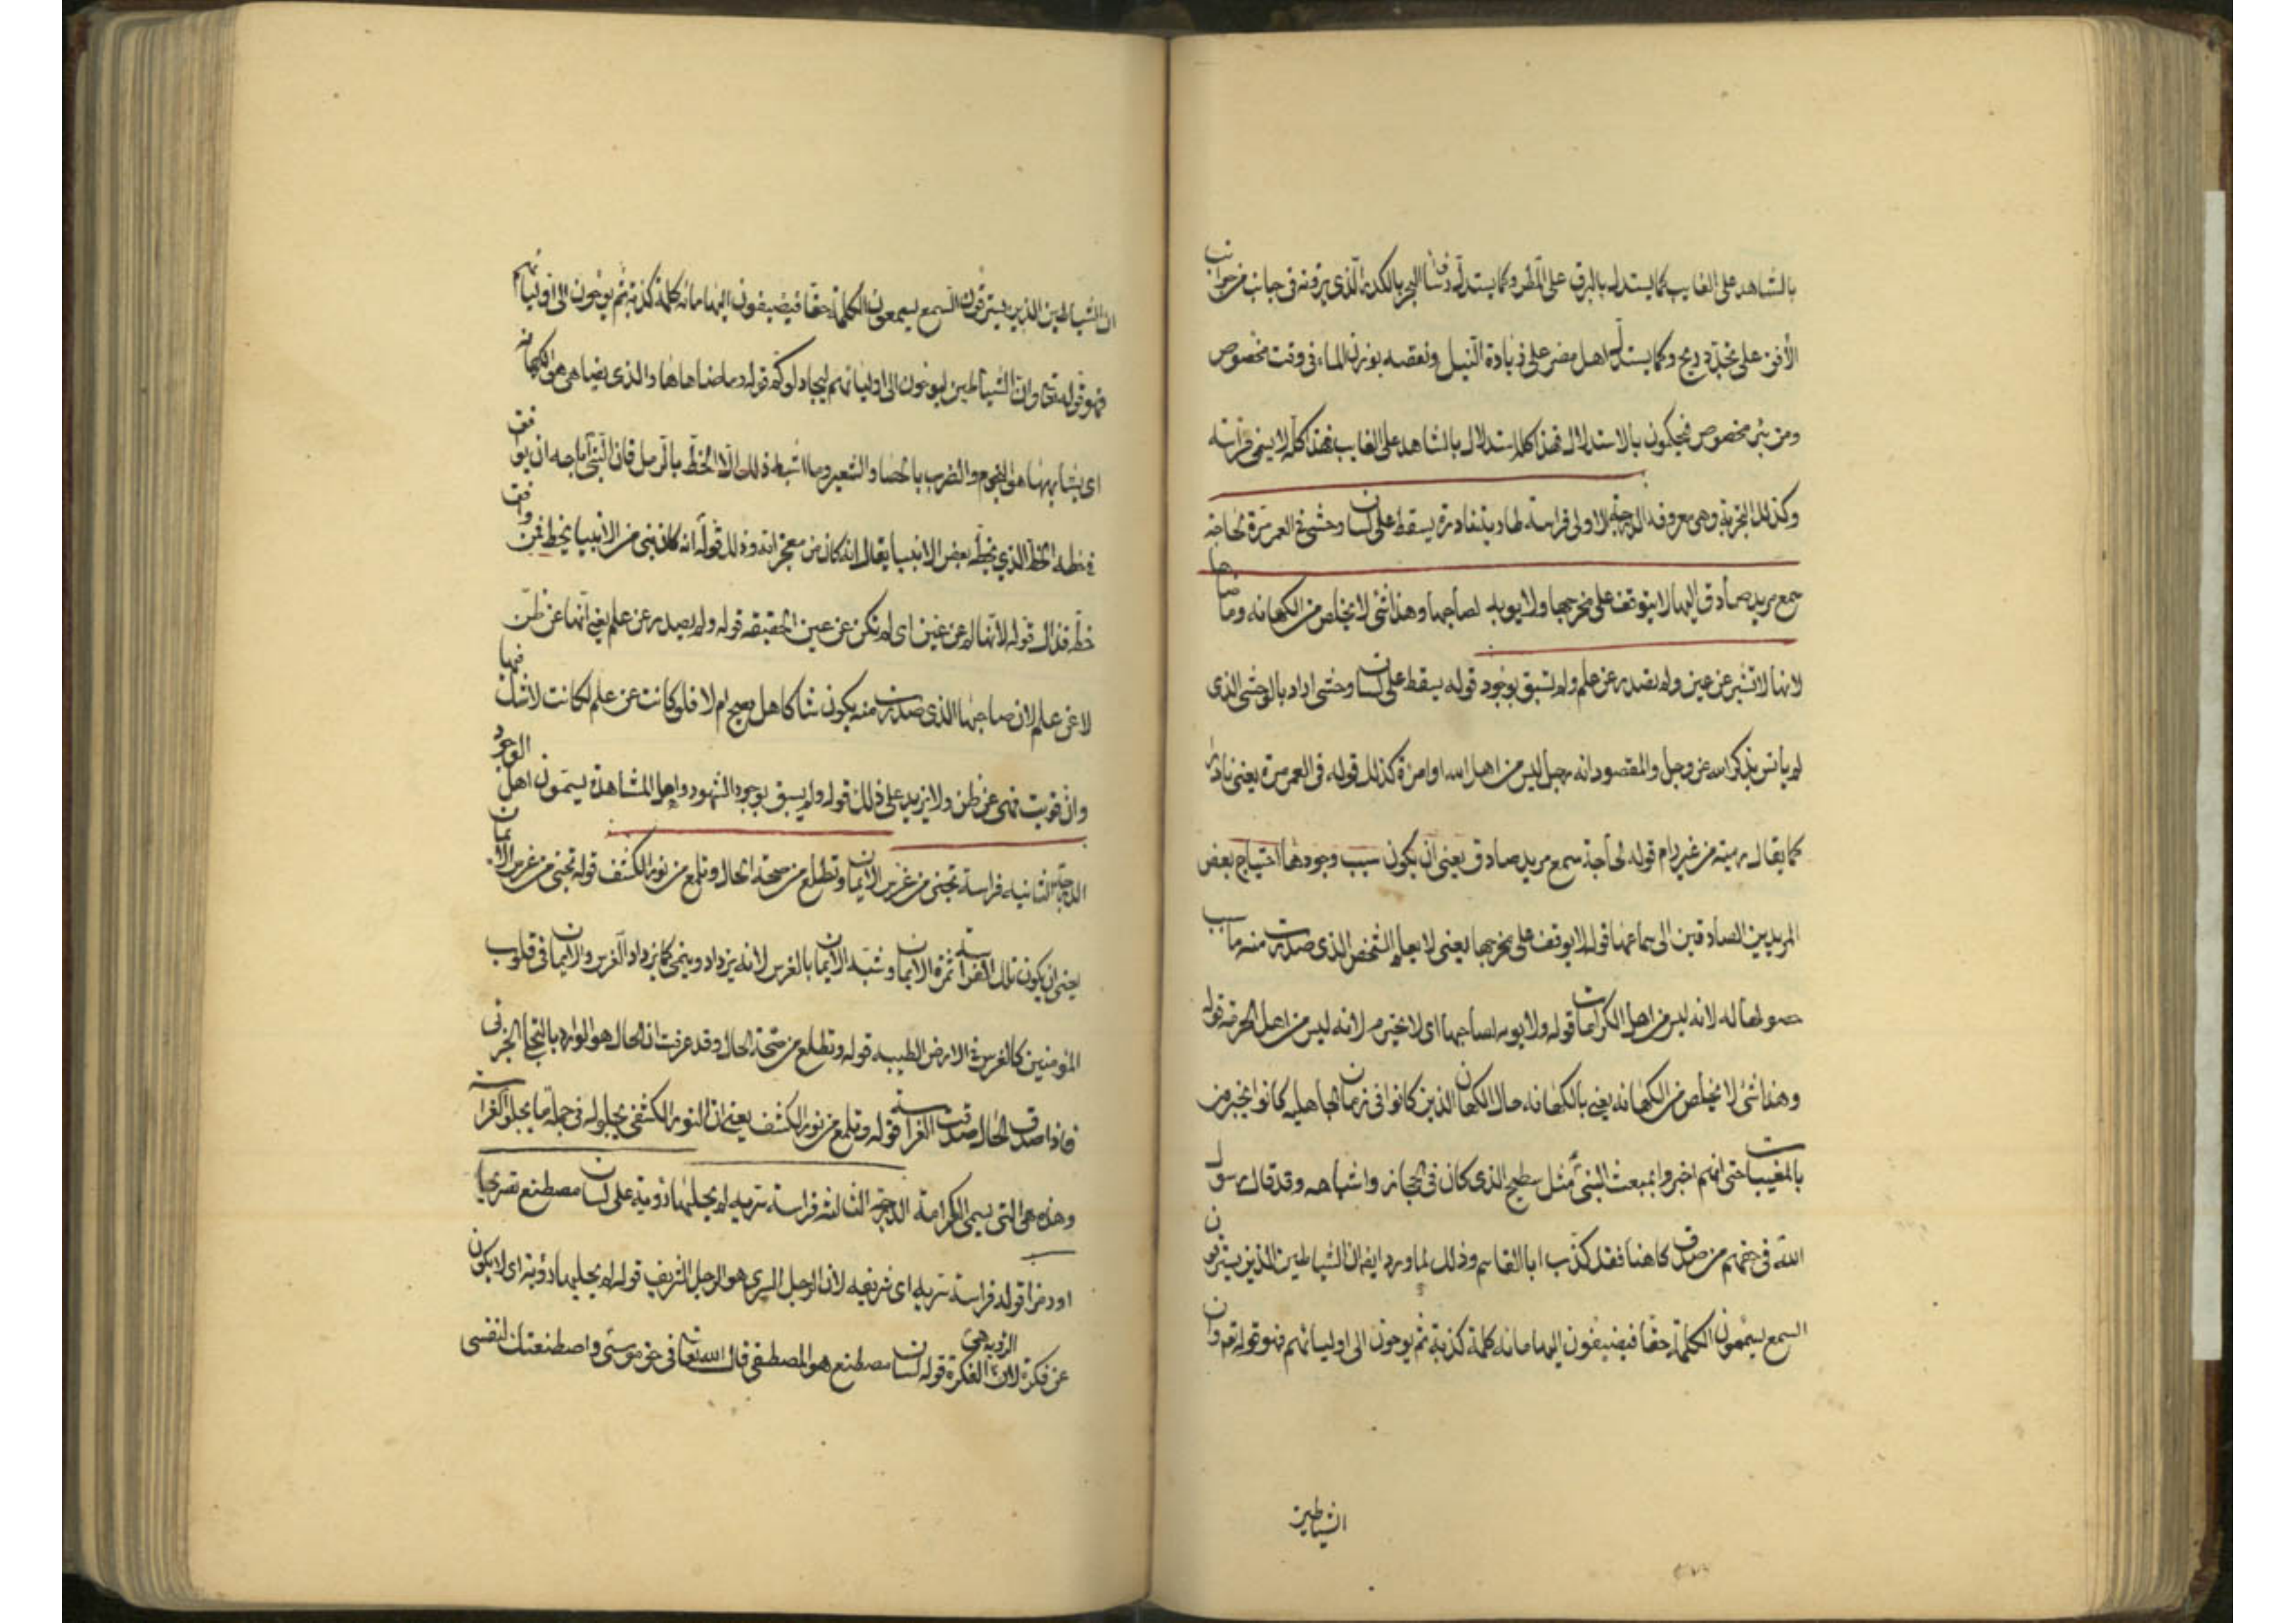 بالشاهد على الغايب كما يستدل بالبرق على المطر وكما يستدل البحر بالكدر الذى يرونه فى جانب من جوانب
الأفق على تجدد ريح وكما يستدل اهل مصر على زيادة النيل ونقصه بوزن الماء فى وقت مخصوص
ومن بئر مخصوص فيحكمون بالاستدلال فهذا كله استدلال بالشاهد على الغايب فهذا كله لا يسمى فراسة
وكذلك التجربة وهى معروفة الدرجة الاولى فراسة طارية نادرة يسقط على لسان وحشى فى العمر مرة لحاجة
سمع مريد صادق اليها لا يتوقف على مخرجها ولا يوبه لصاحبها وهذا شئ لا يخلص من الكهانه وما ضاهاها
لانها لا تشير عن عين ولم تصدر عن علم ولم تسبق بوجود قوله يسقط على لسان وحشى اراد بالوحشى الذى
لم يأنس بذكر الله عز وجل والمقصود انه رجل ليس من اهل الله او امرة كذلك قوله فى العمر مرة يعنى نادرا
كما يقال رمية من غير رام قوله لحاجة سمع مريد صادق يعنى ان يكون سبب وجودها احتياج بعض
المريدين الصادقين الى سماعها قوله لا يوقف على مخرجها يعنى لا يعلم الشخص الذى صدرت منه ما سبب
حصولها له لانه ليس من اهل الكرامات قوله ولا يوبه لصاحبها اى لا يحترم لانه ليس من اهل الحرمة قوله
وهذا شئ لا يخلص من الكهانه يعنى بالكهانه حال الكهان الذين كانوا فى زمان الجاهليه كانوا يخبرون
بالمغيبات حتى انهم اخبروا بمبعث النبى مثل سطيح الذى كان فى الحجاز واشباهه وقد قال رسول
الله فى حقهم من صدق كاهنا فقد كذب ابا القاسم وذلك لما ورد ايضا ان الشياطين الذين يسترقون
السمع يسمعون الكلمة حقا فيضيفون اليها مائة كلمة كذبة ثم يوحون الى اوليائهم فهو قوله تع وان
الشياطين
ان الشياطين الذين يسترقون السمع يسمعون الكلمة حقا فيضيفون اليها مائه كلمة كذبة ثم يوحون الى اوليائهم
فهو قوله تع وان الشياطين ليوحون الى اوليائهم ليجادلوكم قوله وما ضاهاها والذى يضاهى هى الكهانه
اى يشابهها هو النجوم والضرب بالحصا والشعير وما اشبه ذلك الا الخط بالرمل فان النبى اباحه ان يوافق
خطه الخط الذى يخطه بعض الانبيا يقال انه كان من معجزاته وذلك قوله انه كان نبى من الانبيا يخط فمن وافق
خطه فذاك قوله لانها لم عن عين اى لم تكن عن عين الحقيقه قوله ولم يصدر عن علم يعنى انها عن ظن
لا عن علم لان صاحبها الذى صدرت منه يكون شاكا هل يصح ام لا فلو كانت عن علم لكانت لا شك فيها
وان قويت فهى عن ظن ولا يزيد على ذلك قوله ولم يسبق بوجود الشهود واهل المشاهدة يسمون اهل الوجود
الدرجة الثانيه فراسة تجنى من غرس الايمان وتطلع من صحة الحال وتلمع من نور الكشف قوله تجنى من غرس الايمان
يعنى ان يكون تلك الفراسة ثمرة الايمان وشبه الايمان بالغرس لانه يزداد وينمى كما يزداد الغرس والايمان فى قلوب
المؤمنين كالغرس فى الارض الطيبه قوله وتطلع من صحة الحال وقد عرفت ان الحال هو الوارد بالتجلى الجزئى
فاذا صدق الحال صدقت الفراسة قوله وتلمع من نور الكشف يعنى ان النور الكشفى يجلو له فى جملة ما يجلو الفراسة
وهذه هى التى يسمى الكرامة الدرجة الثالثة فراسة سريه لم يجلبها روية على لسان مصطنع تصريحا
او رمزا قوله فراسة سريه اى شريفه لان الرجل السرى هو الرجل الشريف قوله لم يجلبها روية اى لا يكون
عن فكرة لان الرويه هى الفكرة قوله لسان مصطنع هو المصطفى قال الله تعا فى حق موسى واصطنعتك لنفسى